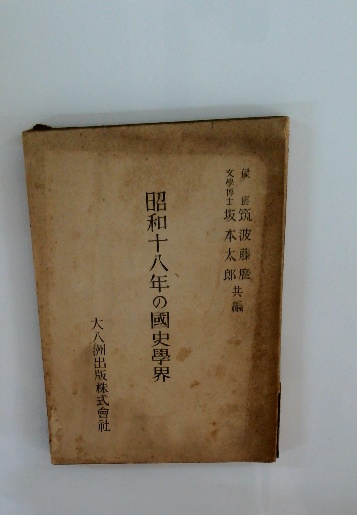 侯爵 筑波藤麿
文學博士 坂本太郎 共編
昭和十八年の國史學界
大八洲出版株式會社